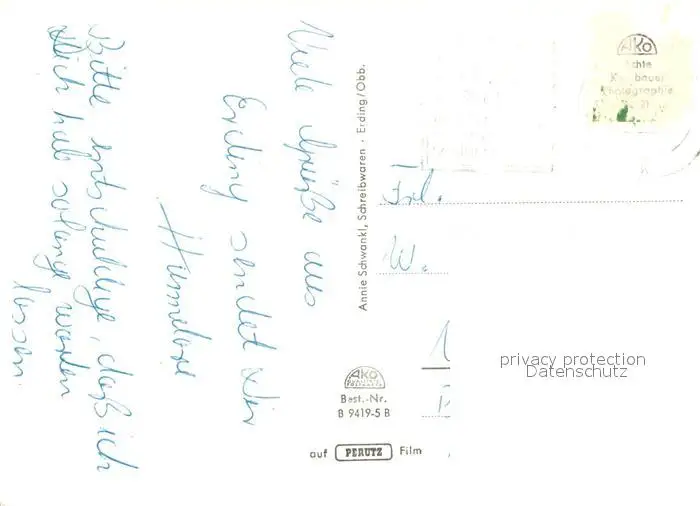 Viele Grüße aus
Erding sendet Dir
Hannelore
Bitte entschuldige, daß ich
Dich hab solang warten
lassen.
Annie Schwankl, Schreibwaren · Erding/Obb.
AKO
Echte
Photographie
Frl.
W.
privacy protection
Datenschutz
AKO
Best.-Nr.
B 9419-5 B
auf PERUTZ Film